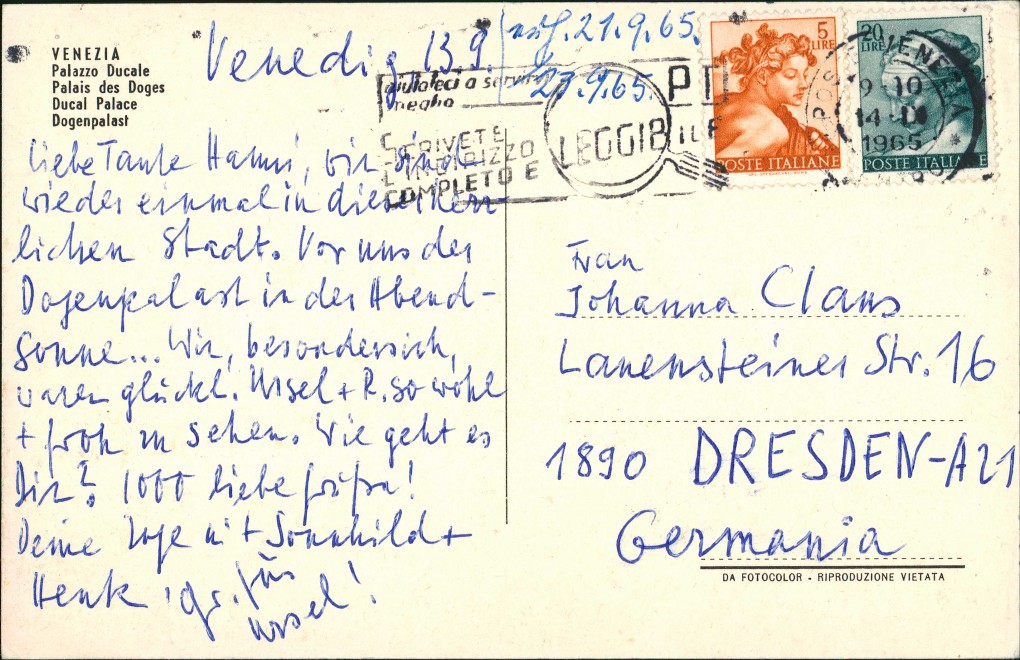 VENEZIA
Palazzo Ducale
Palais des Doges
Ducal Palace
Dogenpalast
Venedig 13.9.
21.9.65.
23.9.65.
aiutateci a servirvi
meglio
SCRIVETE
L'INDIRIZZO
COMPLETO E
LEGGIBILE
PTT
5
LIRE
POSTE ITALIANE
20
LIRE
POSTE ITALIANE
VENEZIA
9-10
14-IX
1965
liebe Tante Hanni, wir sind
wieder einmal in dieser herr-
lichen Stadt. Vor uns der
Dogenpalast in der Abend-
sonne... Wir, besonders ich,
waren glückl. Ursel + R. so wohl
+ froh zu sehen. Wie geht es
Dir? 1000 liebe Grüße!
Deine mit Sonnhild +
Henk
Ursel!
Frau
Johanna Claus
Lauensteiner Str. 16
1890 DRESDEN-A21
Germania
DA FOTOCOLOR - RIPRODUZIONE VIETATA